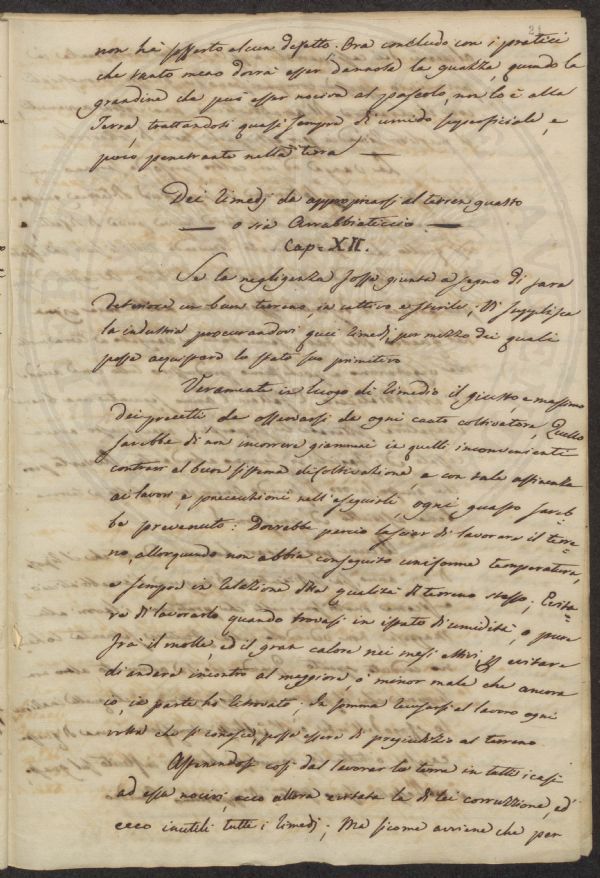 non hà sofferto alcun difetto. Ora concludo con i pratici
che tanto meno dovrà esser dannosa la guazza, quando la
grandine che può esser nociva al pascolo, non lo è alla
Terra, trattandosi quasi sempre di umido superficiale, e
poco penetrante nella terra —
Dei rimedj da appropriarsi al terren guasto
— o sia Arrabbiaticcio —
Cap. XII.
Se la negligenza fosse giunta a segno di fare
deteriorare un buon terreno, in cattivo e sterile, Vi supplisce
la industria procurandovi quei rimedj, per mezzo dei quali
possa acquistare lo stato suo primitivo
Veramente in luogo di rimedio il giusto, e massimo
dei precetti, da osservarsi da ogni cauto coltivatore, Quello
sarebbe di non incorrere giammai in quelli inconvenienti
contrari al buon sistema di coltivazione, e con tale
ai lavori, e precauzioni nell'eseguirli, ogni guasto sareb=
be prevenuto: Dovrebbe perciò lasciar di lavorare il terre=
no, allorquando non abbia conseguito uniforme temperatura,
e sempre in relazione alla qualità di terreno stesso; Evita=
re di lavorarlo quando trovasi in stato d'umidità, o pure
frà il molle, ed il gran calore nei mesi estivi per evitare
di andare incontro al maggiore, o minor male che ancora
io, in parte hò ritrovato; In somma ricusarsi al lavoro ogni
volta che si conosce, possa essere di pregiudizio al terreno
Astenendosi così dal lavorar la terra in tutti i casi
ad essa nocivi, ecco allora evitata la di lei corruzione, ed
ecco inutili tutti i rimedj; Ma siccome avviene che per